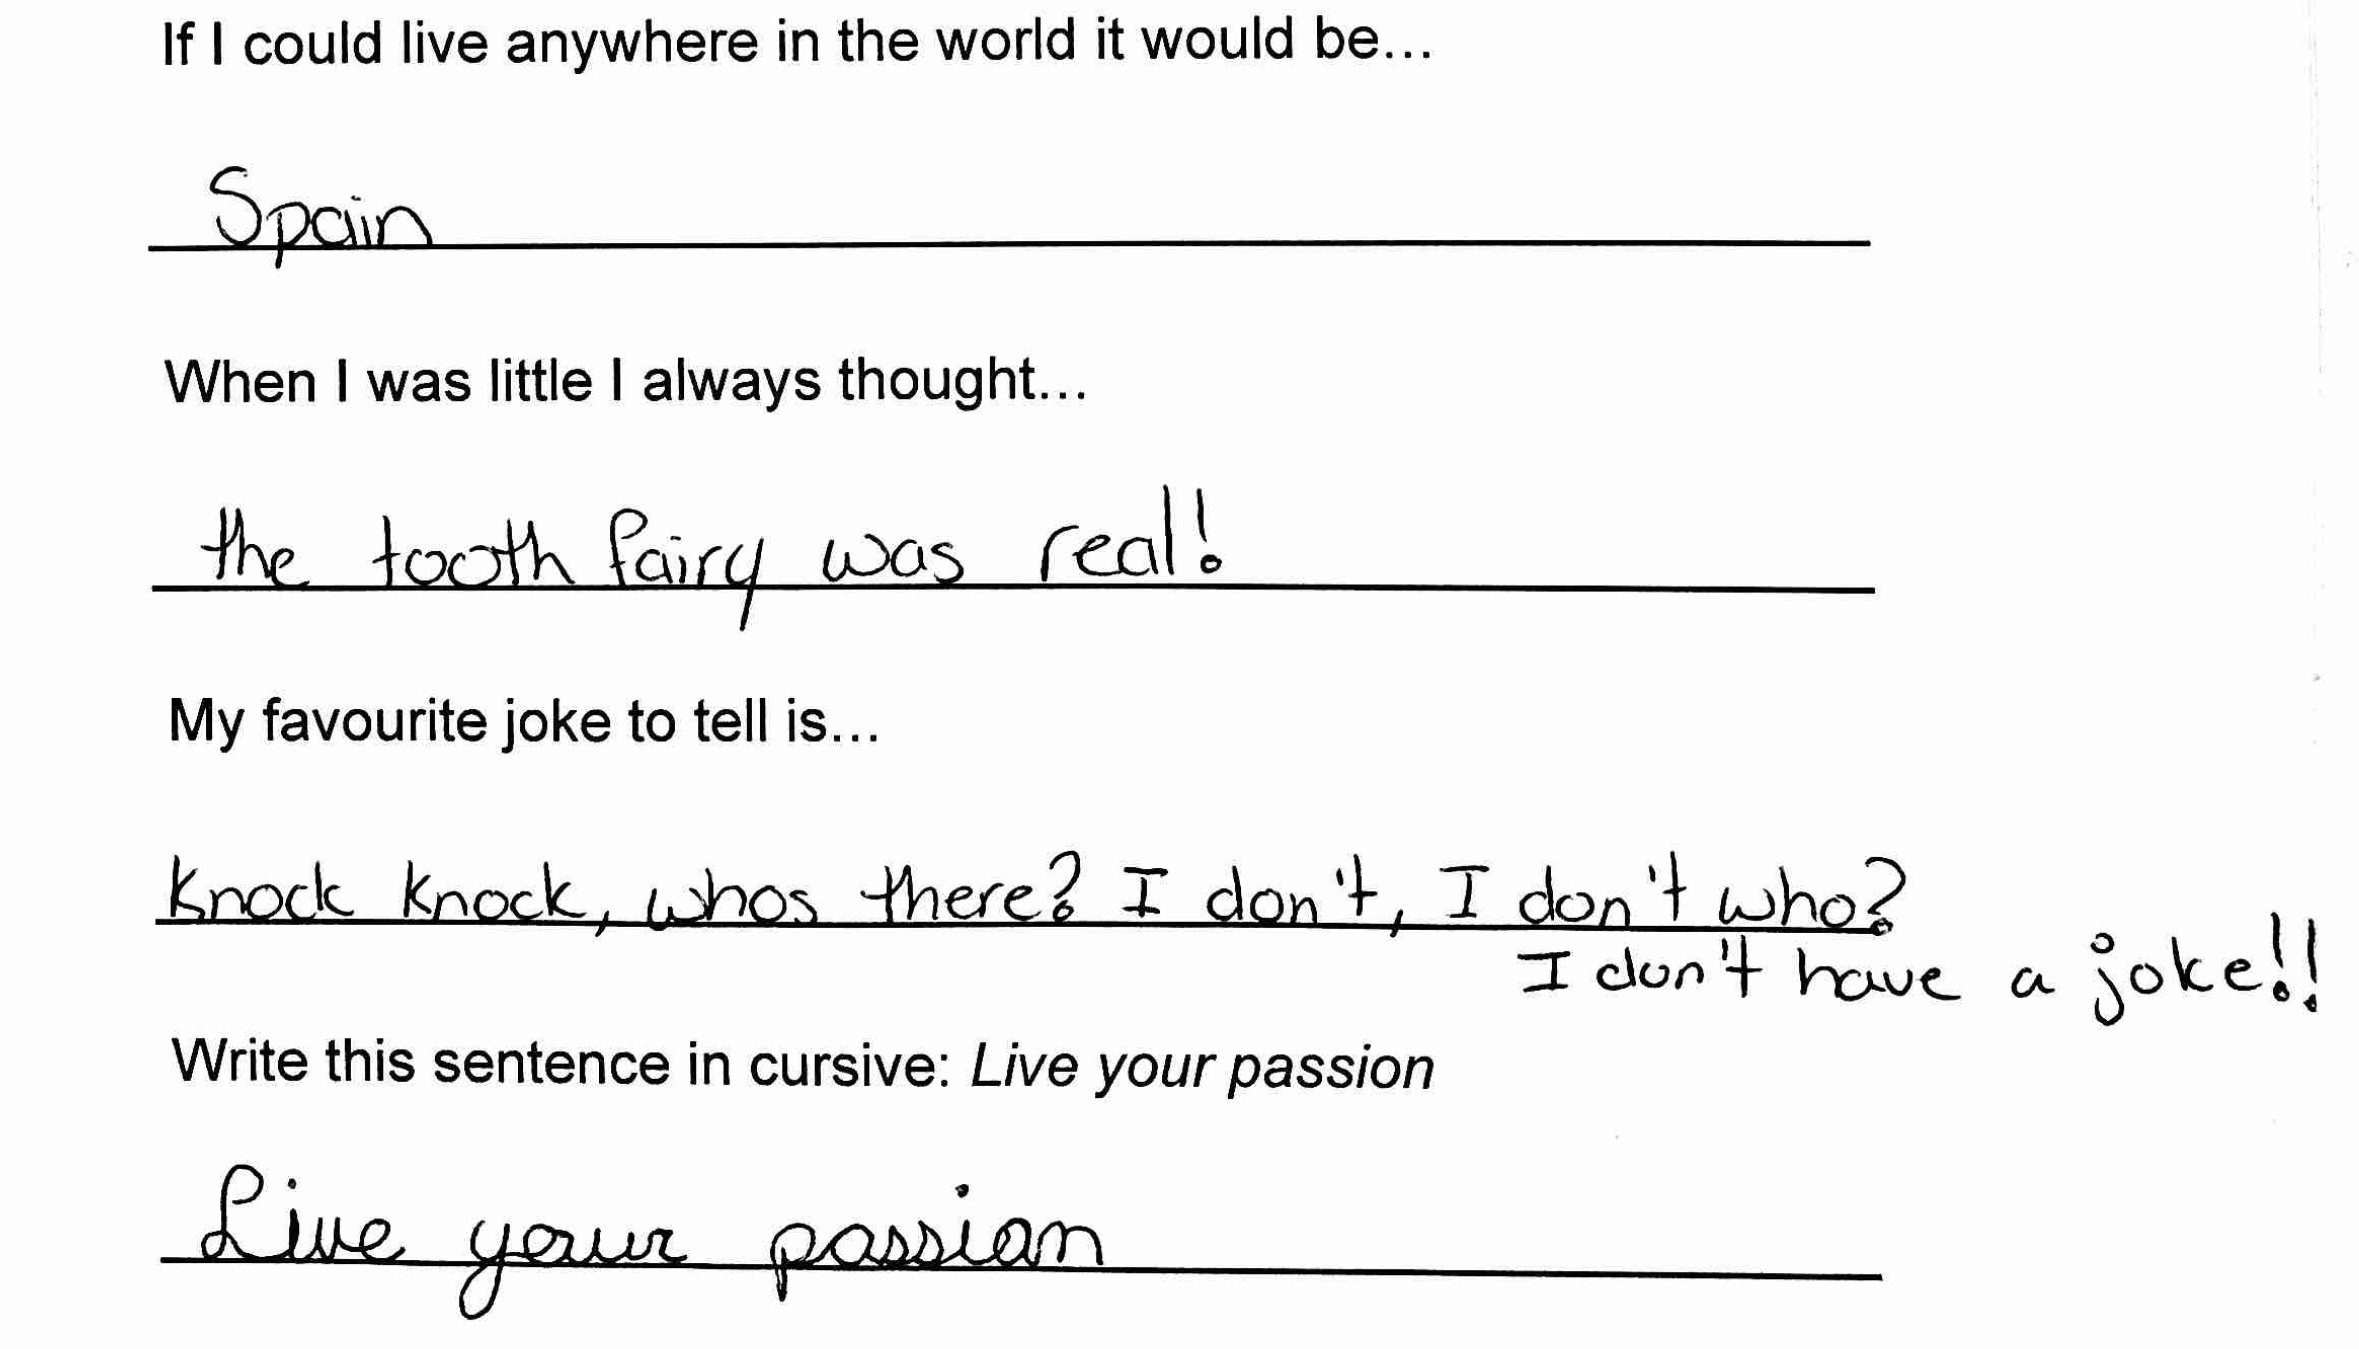 If I could live anywhere in the world it would be...
Spain
When I was little I always thought...
the tooth fairy was real!
My favourite joke to tell is...
Knock Knock, whos there? I don't, I don't who?
I don't have a joke!!
Write this sentence in cursive: Live your passion
Live your passion